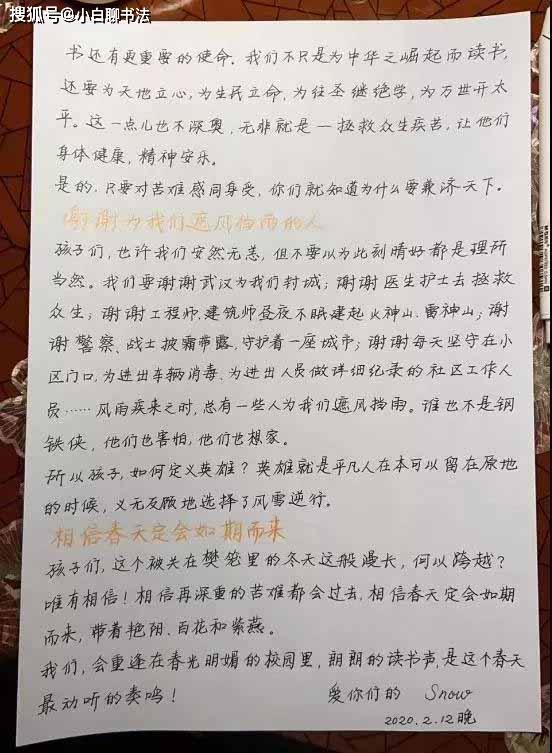 搜狐号@小白聊书法
书还有更重要的使命。我们不只是为中华之崛起而读书,
还要为天地立心,为生民立命,为往圣继绝学,为万世开太
平。这一点儿也不深奥,无非就是一拯救众生疾苦,让他们
身体健康,精神安乐。
是的,只要对苦难感同身受,你们就知道为什么要兼济天下。
谢谢为我们遮风挡雨的人
孩子们,也许我们安然无恙,但不要以为此刻晴好都是理所
当然。我们要谢谢武汉为我们封城;谢谢医生护士去拯救
众生;谢谢工程师、建筑师昼夜不眠建起火神山、雷神山;谢
谢警察、战士披霜带露、守护着一座城市;谢谢每天坚守在小
区门口,为进出车辆消毒、为进出人员做详细纪录的社区工作人
员……风雨疾来之时,总有一些人为我们遮风挡雨。谁也不是钢
铁侠,他们也害怕,他们也想家。
所以孩子,如何定义英雄?英雄就是平凡人在本可以留在原地
的时候,义无反顾地选择了风雪逆行。
相信春天定会如期而来
孩子们,这个被关在樊笼里的冬天这般漫长,何以跨越?
唯有相信!相信再深重的苦难都会过去,相信春天定会如期
而来,带着艳阳、百花和紫燕。
我们,会重逢在春光明媚的校园里,朗朗的读书声,是这个春天
最动听的奏鸣!
爱你们的 Snow
2020.2.12晚